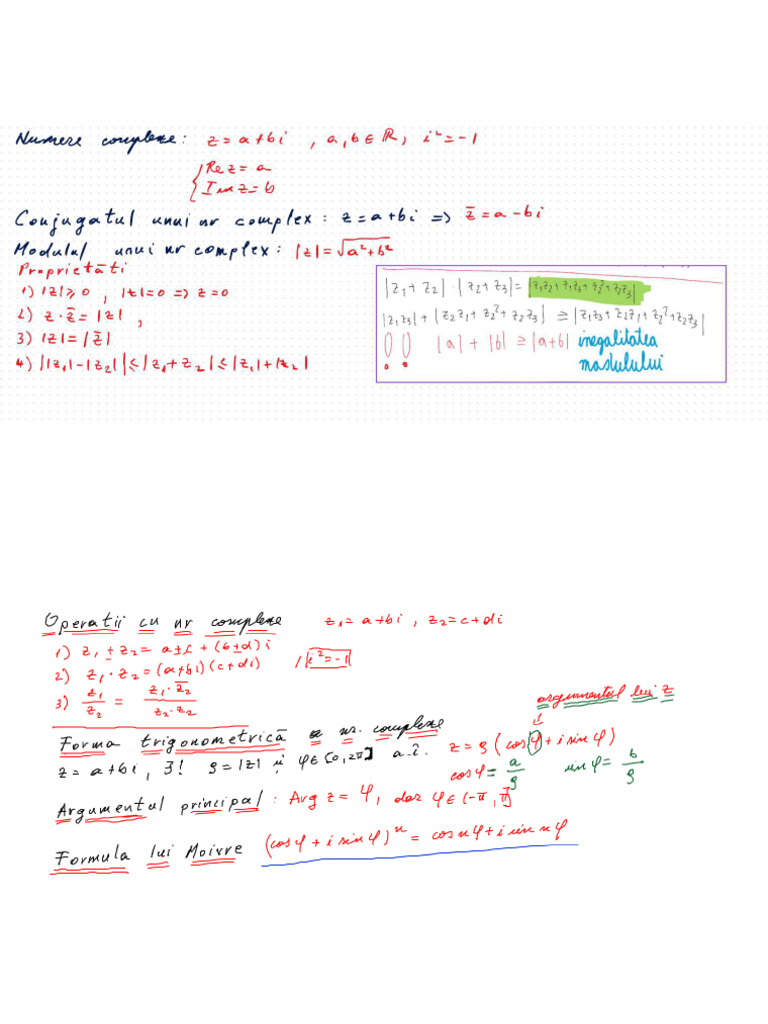 Numere complexe: z = a+bi , a,b ∈ ℝ, i² = -1
{ Re z = a
Im z = b
Conjugatul unui nr complex : z = a+bi => z̄ = a-bi
Modulul unui nr complex : |z| = √(a²+b²)
Proprietăti
1) |z| ≥ 0 , |z| = 0 => z = 0
2) z · z̄ = |z| ,
3) |z| = |z̄|
4) ||z₁| - |z₂|| ≤ |z₁ + z₂| ≤ |z₁| + |z₂|
|z₁ + z₂| · |z₂ + z₃| = |z₁z₂ + z₁z₃ + z₂² + z₂z₃|
|z₁z₃| + |z₂z₁ + z₂² + z₂z₃| ≥ |z₁z₃ + z₂z₁ + z₂² + z₂z₃|
!! |a| + |b| ≥ |a+b| inegalitatea
modulului
Operatii cu nr complexe z₁ = a+bi , z₂ = c+di
1) z₁ ± z₂ = a±c + (b±d)i
2) z₁ · z₂ = (a+bi)(c+di) / i² = -1
3) z₁/z₂ = z₁·z̄₂/z₂·z₂
argumentul lui z
Forma trigonometrică a nr. complexe z = ρ(cosφ + i sinφ)
z = a+bi , ∃! ρ = |z| și φ ∈ [0, 2π] a.î. cosφ = a/ρ sinφ = b/ρ
Argumentul principal : Arg z = φ, dar φ ∈ (-π, π]
Formula lui Moivre (cosφ + i sinφ)ⁿ = cos nφ + i sin nφ